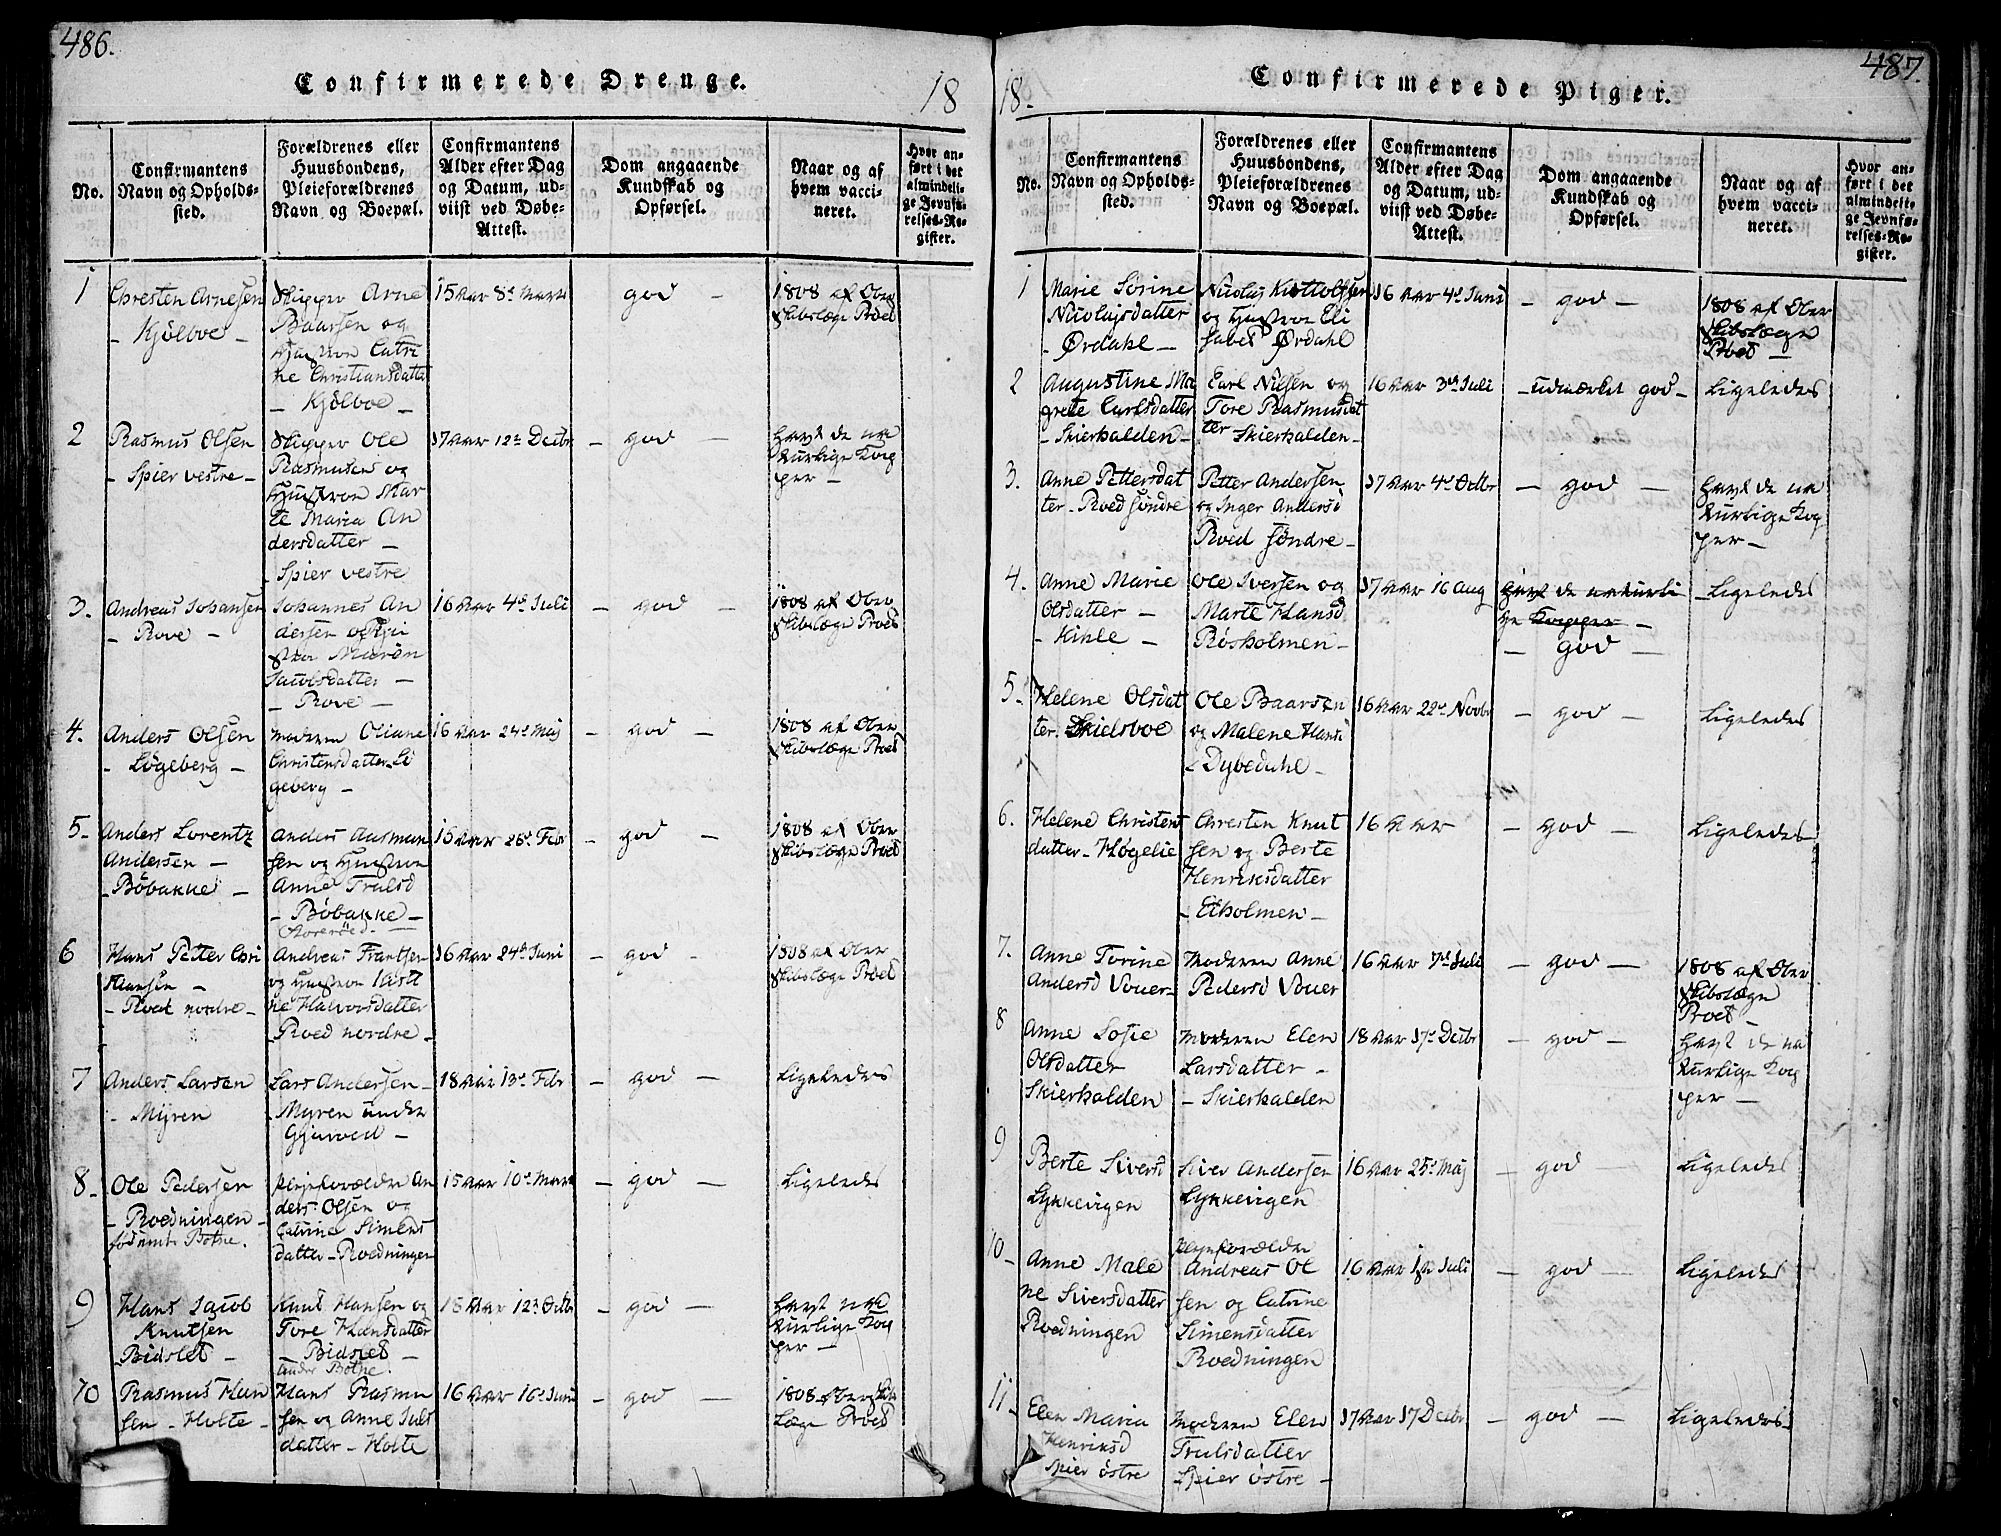 486.
Confirmerede Drenge.
18
No.
Confirmantens
Navn og Opholds-
sted.
Forældrenes eller
Huusbondens,
Pleieforældrenes
Navn og Boepæl.
Confirmantens
Alder efter Dag
og Datum, ud-
viist ved Døbe-
Attest.
Dom angaaende
Kundskab og
Opførsel.
Naar og af
hvem vacci-
neret.
Hvor an-
ført i det
almindeli-
ge Jevnfø-
relses-Re-
gister.
1
Chresten Arnesen
- Kjölboe -
Skipper Arne
Baarsen og
Hustroe Catri
ne Christiansdatter
- Kjölboe -
15 Aar 8de Marts
god -
1808 af Ober
Skibslæge Proet
2
Rasmus Olsen
- Spier vestre -
Skipper Ole
Rasmusen og
Hustroe Mar
te Maria An
dersdatter -
- Spier vestre
17 Aar 12te Decbr
- god -
havt de na
turlige Kop
per -
3.
Andreas Johansen
- Rove -
Johannes An
dersen og Hu
stroe Maren
Jacobsdatter -
- Rove -
16 Aar 4de Juli
- god -
1808 af Ober
Skibslæge Proet
4.
Anders Olsen
- Løgeberg -
Moderen Oliane
Christensdatter Lö
geberg -
16 Aar 24de Maj
- god -
1808 af Ober
Skibslæge Proet
5-
Anders Lorentz
Andersen -
- Böbakke -
Anders Aasmun
sen og Hustroe
Anne Trulsd
- Böbakke -
15 Aar 26de Febr
- god -
1808 af Ober
Skibslæge Proet
6
Hans Petter Chri
stiansen -
- Roed nordre -
Andreas Frantsen
og Hustroe Kirsti
ne Halvorsdatter
Roed nordre -
16 Aar 24de Juni
- god -
1808 af Ober
Skibslæge Proet
7
Anders Larsen
- Myren
Lars Andersen -
- Myren under
Gjerved -
18 Aar 13de Febr
- god -
Ligeledes
8-
Ole Pedersen
- Roedningen -
föd Botne.
Plejeforældre An
ders Olsen og
Catrine Simens
datter - Roedningen
15 Aar 10de Marts
- god -
Ligeledes
9
Hans Jacob
Knutsen
Bidslet -
Knut Hansen og
Tore Hansdatter
- Bidslet -
under Botne.
16 Aar 12te Octbr
- god -
havt na
turlige Kop
per -
10
Rasmus Han
sen - Holte -
Hans Rasmu
sen og Anne Juls
datter - Holte
16 Aar 16de Juni
- god -
1808 Oberskibs
læge Proet
487.
18-
Confirmerede Piger.
No.
Confirmantens
Navn og Opholds-
sted.
Forældrenes eller
Huusbondens,
Pleieforældrenes
Navn og Boepæl.
Confirmantens
Alder efter Dag
og Datum, ud-
viist ved Døbe-
Attest.
Dom angaaende
Kundskab og
Opførsel.
Naar og af
hvem vacci-
neret.
Hvor an-
ført i det
almindeli-
ge Jevnfø-
relses-Re-
gister.
1
Marie Sørine
Nicolajsdatter
- Ørdahl -
Nicolaj
og Hustroe Eli
sabet Ørdahl
16 Aar 4de Juni
- god -
1808 af Ober
Skibslæge
Proet -
2
Augustine Ma
grete Carlsdatter
- Skierhalden -
Carl Nilsen og
Tore Rasmusdat
ter Skierhalden -
16 Aar 3de Juli
- udmærket god -
Ligeledes
3.
Anne Pettersdat
ter - Roed söndre
Petter Andersen
og Inger Andersd
Roed söndre -
17 Aar 4de Octbr
- god -
havt de na
turlige Kop
per -
4.
Anne Marie
Olsdatter -
- Kihle -
Ole Iversen og
Marte Hansd
Røsholmen -
17 Aar 16 Aug
havt de naturli
ge Kopper -
- god -
Ligeledes
5-
Helene Olsdat
ter. Skielsboe
Ole Baarsen
og Malene Hansd
- Dybedahl -
16 Aar 22de Novbr
- god -
Ligeledes
6.
Helene Christens
datter - Høgelie
Chresten Knut
sen og Berte
Henriksdatter
- Ekholmen -
16 Aar
- god -
Ligeledes
7.
Anne Torine
Andersd Vouer -
Moderen Anne
Pedersd Vouer
16 Aar 7de Juli
- god -
1808 af Ober
Skibslæge
Proet -
8
Anne Sofie
Olsdatter
Skierhalden
Moderen Elen
Larsdatter -
- Skierhalden
18 Aar 17de Decbr
- god -
havt de na
turlige Kop
per -
9
Berte Siversd
Lykkevigen
Siver Andersen
Lykkevigen
16 Aar 25de Maj
- god
Ligeledes
10-
Anne Male
ne Siversdatter
Roedningen
Plejeforældre
Andreas Ol
sen og Catrine
Simensdatter
Roedningen
16 Aar 1ste Juli
- god -
Ligeledes
11-
Elen Maria
Henriksd
Spier östre
Moderen Elen
Trulsdatter
Spier östre -
17 Aar 17 Decbr
- god -
Ligeledes